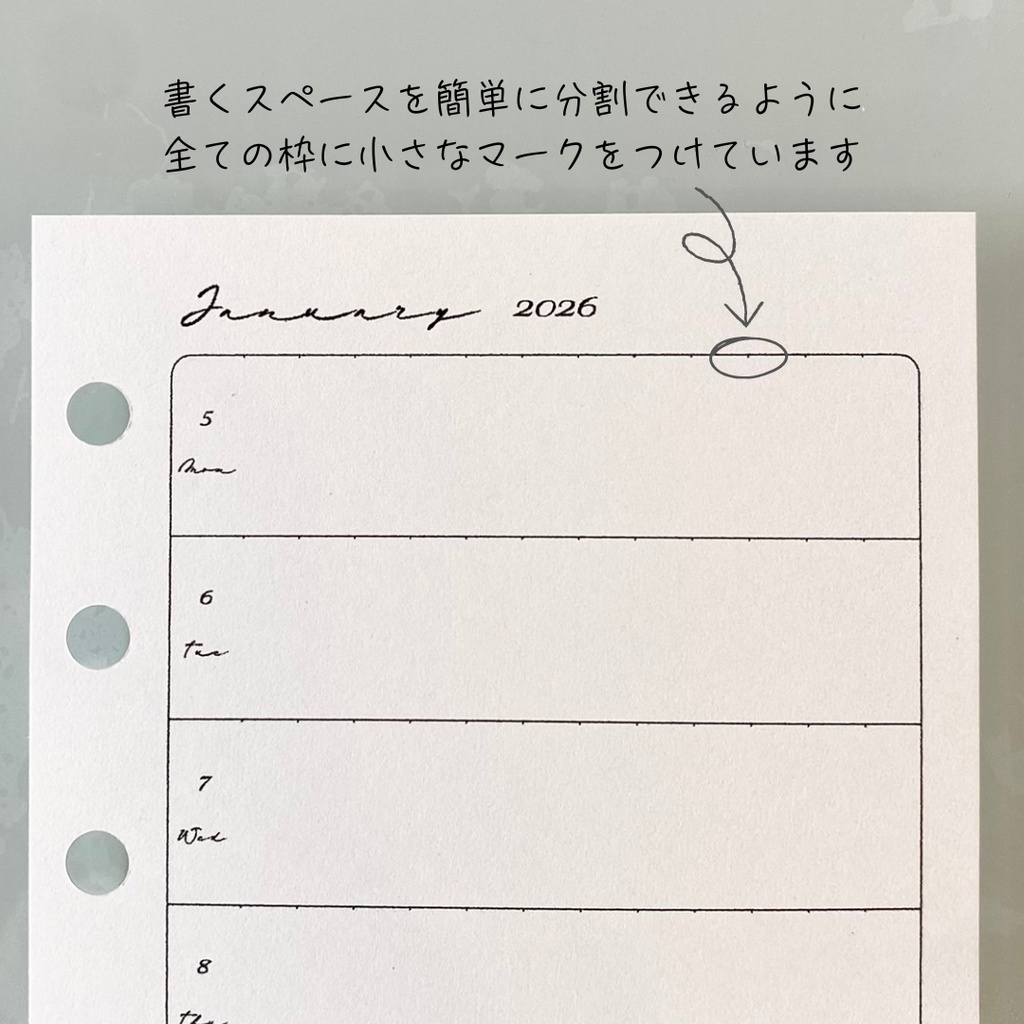 書くスペースを簡単に分割できるように
全ての枠に小さなマークをつけています
January 2026
5
Mon
6
Tue
7
Wed
8